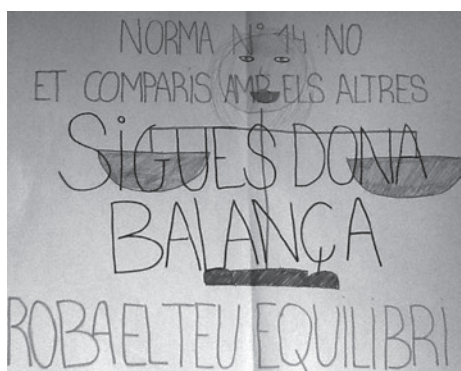 NORMA Nº 14 NO
ET COMPARIS AMB ELS ALTRES
SiGUES DONA
BALANÇA
ROBA EL TEU EQUILIBRI